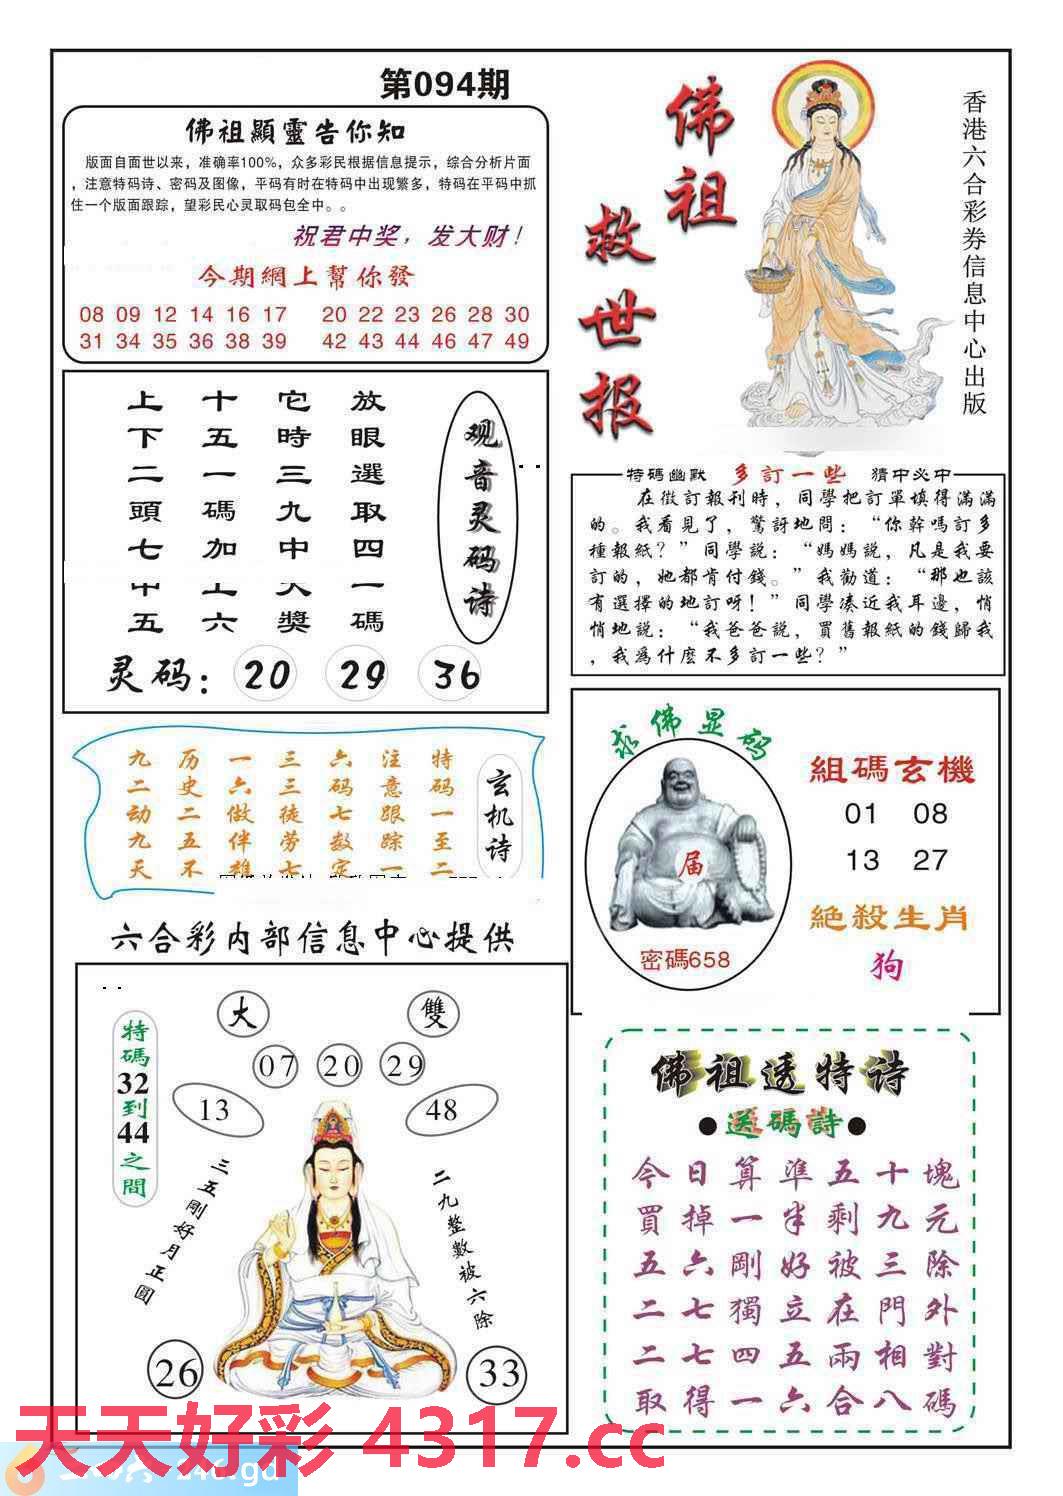 第094期
佛祖顯靈告你知
版面自面世以来，准确率100%，众多彩民根据信息提示，综合分析片面
，注意特码诗、密码及图像，平码有时在特码中出现繁多，特码在平码中抓
住一个版面跟踪，望彩民心灵取码包全中。。
祝君中奖，发大财！
今期網上幫你發
08 09 12 14 16 17 20 22 23 26 28 30
31 34 35 36 38 39 42 43 44 46 47 49
佛祖
救世报
香港六合彩券信息中心出版
观音灵码诗
放眼選取四一碼
它時三九中大獎
十五一碼加上六
上下二頭七中五
灵码：20 29 36
特碼幽默 多訂一些 猜中必中
在徵訂報刊時，同學把訂單填得滿滿
的。我看見了，驚訝地問：“你幹嗎訂多
種報紙？”同學説：“媽媽説，凡是我要
訂的，她都肯付錢。”我勸道：“那也該
有選擇的地訂呀！”同學凑近我耳邊，悄
悄地説：“我爸爸説，買舊報紙的錢歸我
，我爲什麽不多訂一些？”
玄机诗
特码一至二
注意跟踪一
六码七数定
三三徒劳七
一六做伴雄
历史二五不
九二动九天
求佛显码
届
密碼658
組碼玄機
01 08
13 27
絶殺生肖
狗
六合彩内部信息中心提供
特碼32到44之間
大 雙
07 20 29
13 48
三五剛好月正圓
二九整數被六除
26 33
佛祖透特诗
●送碼詩●
今日算準五十塊
買掉一半剩九元
五六剛好被三除
二七獨立在門外
二七四五兩相對
取得一六合八碼
天天好彩 4317.cc
246.gd